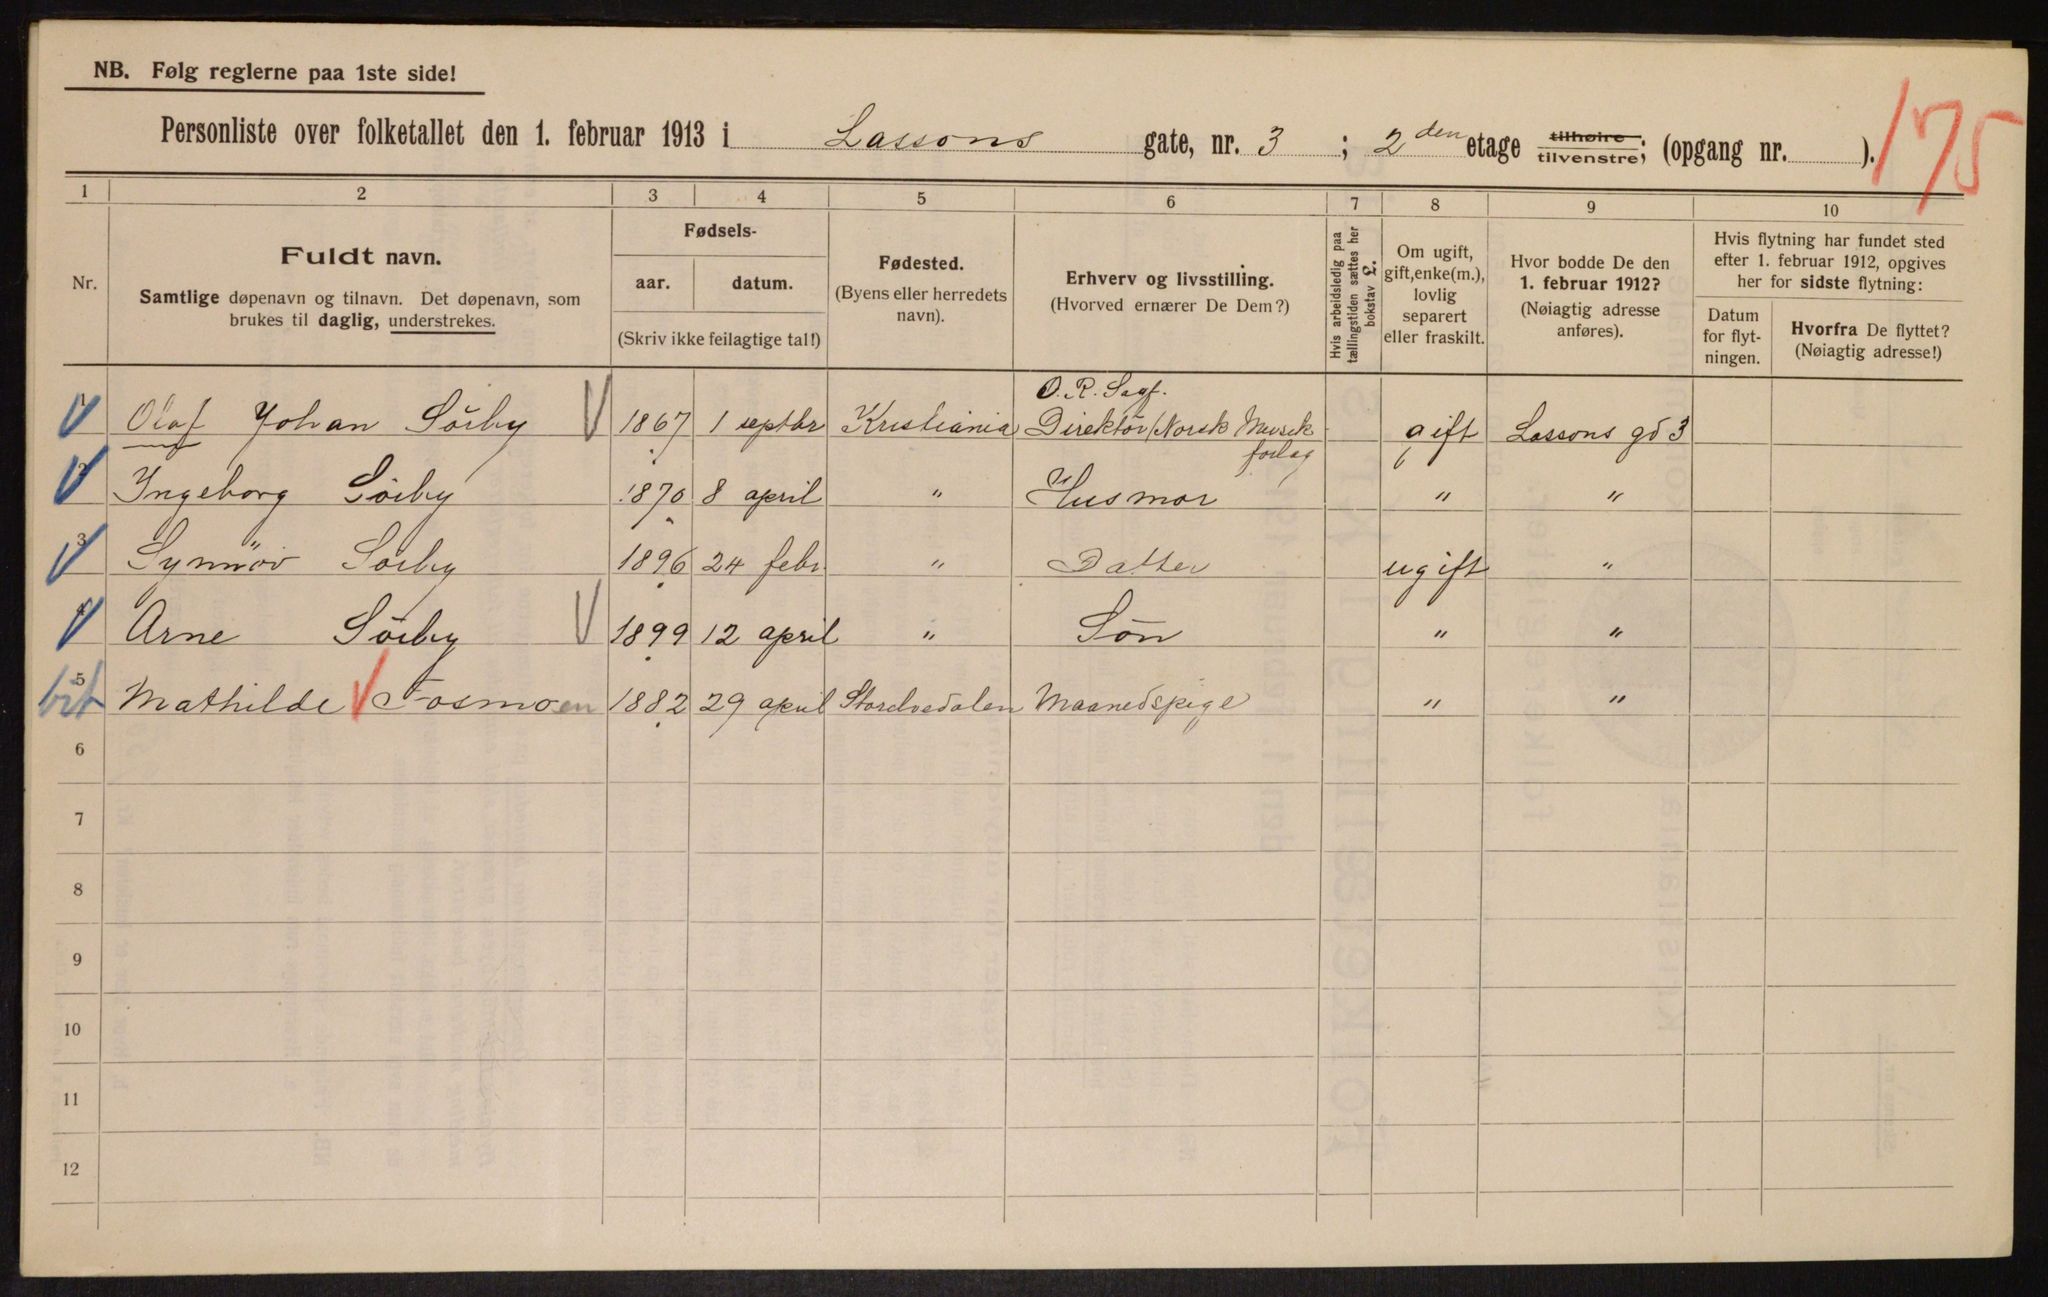 NB. Følg reglerne paa 1ste side!
Personliste over folketallet den 1. februar 1913 i Lassons gate, nr. 3 ; 2 den etage tilhøire tilvenstre; (opgang nr. ).
175
1 2 3 4 5 6 7 8 9 10
Nr.
Fuldt navn.
Samtlige døpenavn og tilnavn. Det døpenavn, som
brukes til daglig, understrekes.
Fødsels-
aar. datum.
(Skriv ikke feilagtige tal!)
Fødested.
(Byens eller herredets
navn).
Erhverv og livsstilling.
(Hvorved ernærer De Dem?)
Hvis arbeidsledig paa
tællingstiden sættes her
bokstav L.
Om ugift,
gift, enke(m.),
lovlig
separert
eller fraskilt.
Hvor bodde De den
1. februar 1912?
(Nøiagtig adresse
anføres).
Hvis flytning har fundet sted
efter 1. februar 1912, opgives
her for sidste flytning:
Datum
for flyt-
ningen.
Hvorfra De flyttet?
(Nøiagtig adresse!)
O. R. Sagf.
1 Olaf Johan Sörby 1867 1 septbr Kristiania Direktör/Norsk Musik gift Lassons gd 3
forlag
2 Ingeborg Sörby 1870 8 april " Husmor " "
3 Synnöv Sörby 1896 24 febr. " Datter ugift "
4 Arne Sörby 1899 12 april " Sön " "
5 Mathilde Fosmoen 1882 29 april Storelvedalen Maanedspige " "
6
7
8
9
10
11
12